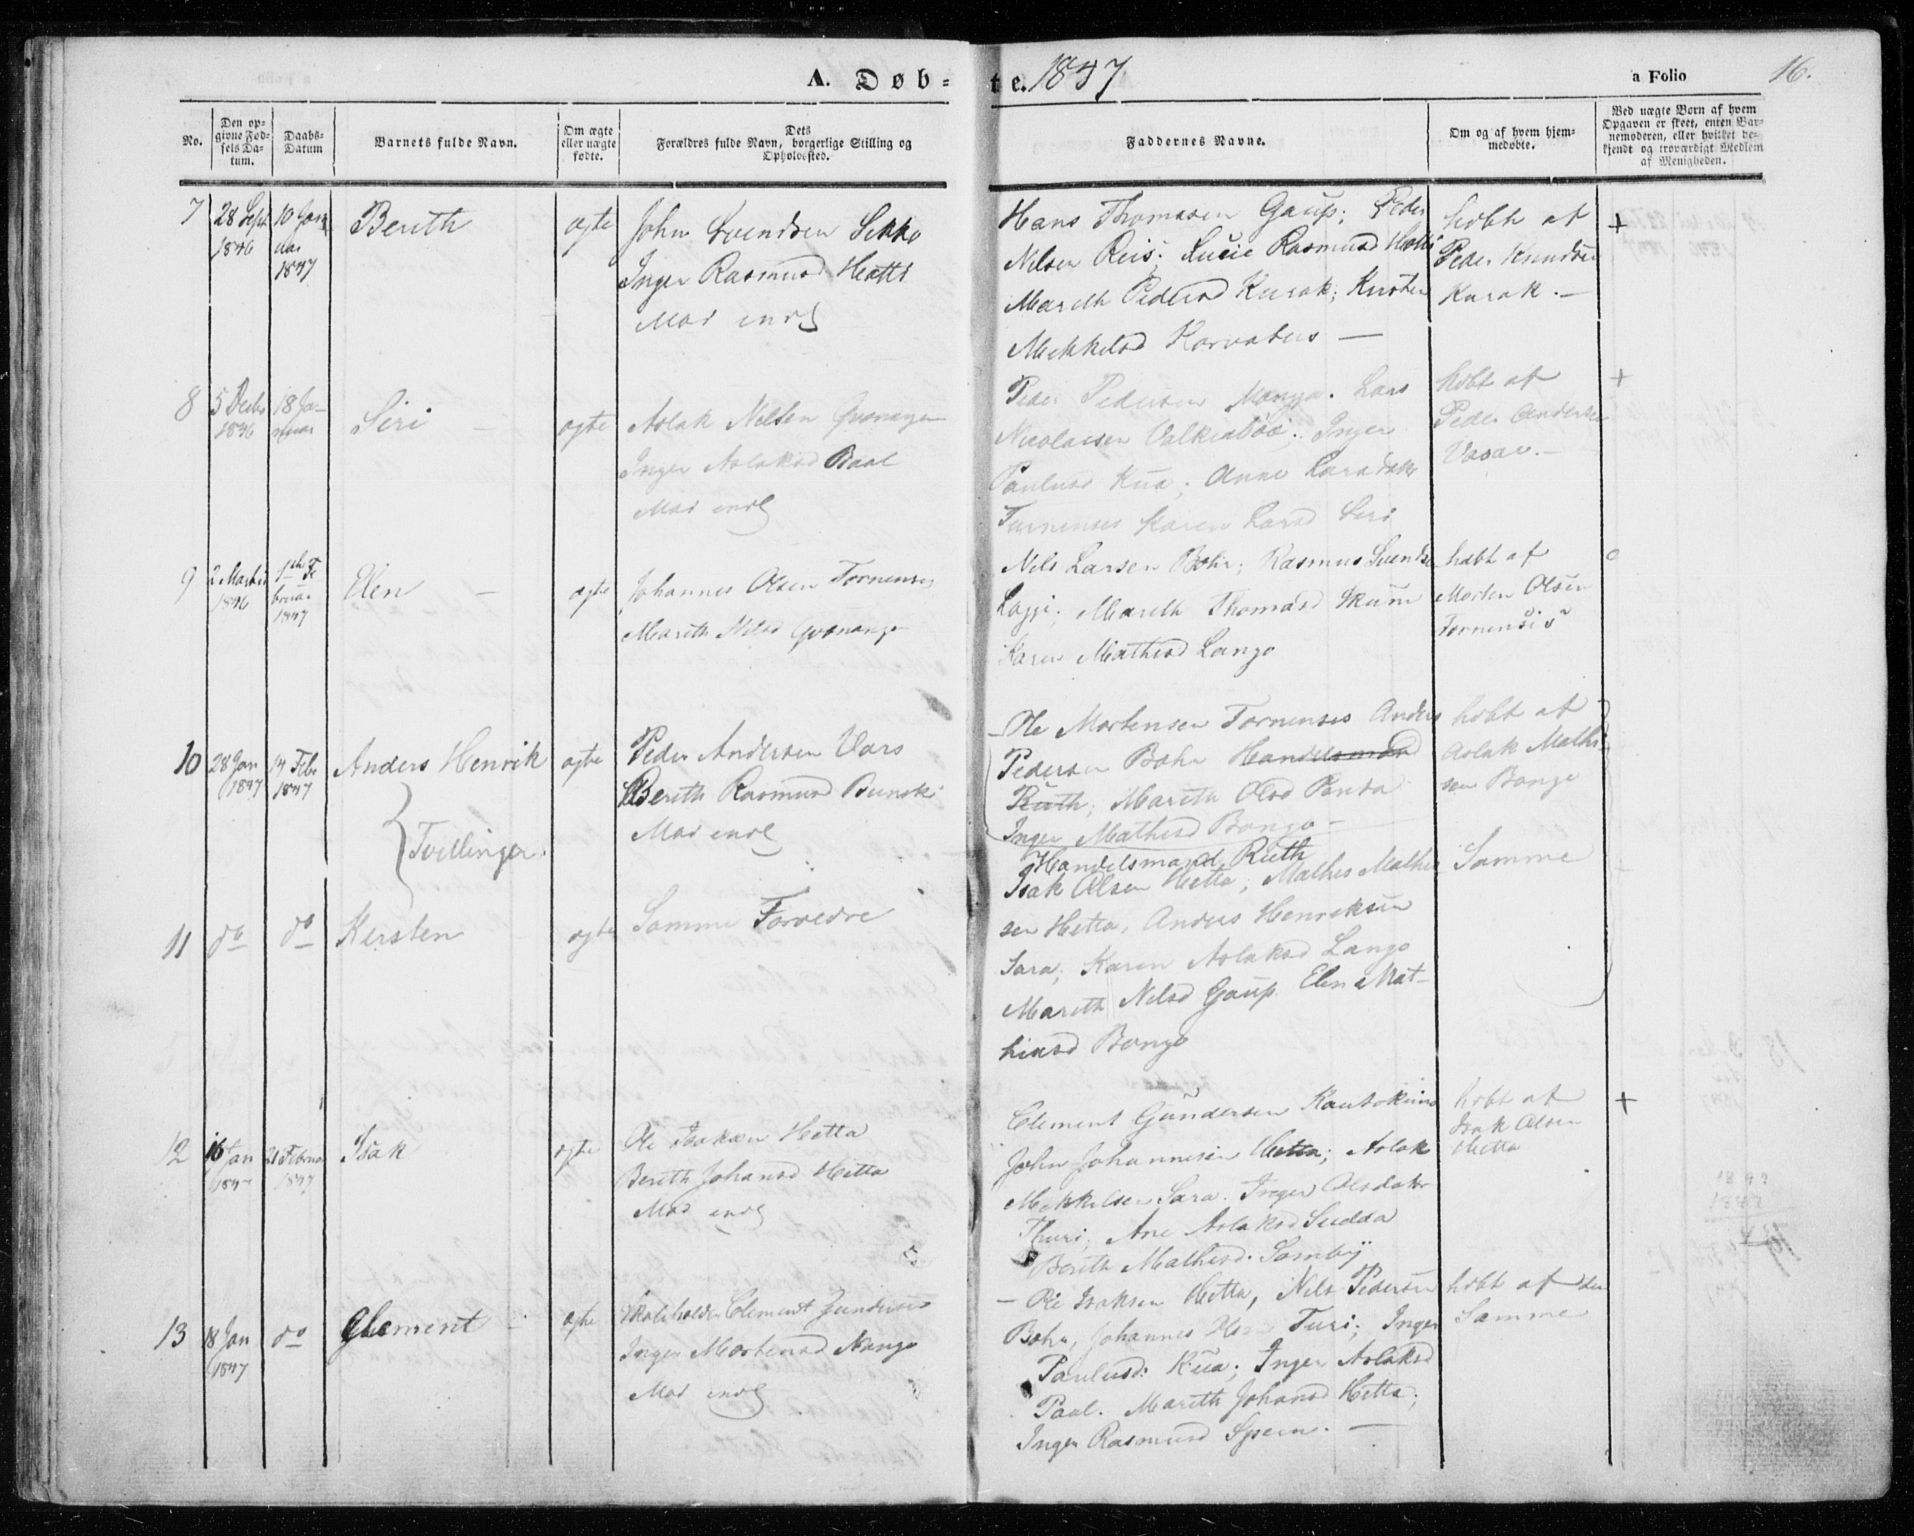 A. Døb- te. 1847
a Folio 16.
No.
Den op-
givne Fød-
sels Da-
tum.
Daabs-
Datum
Barnets fulde Navn.
Om ægte
eller uægte
fødte.
Dets
Forældres fulde Navn, borgerlige Stilling og
Opholdssted.
Faddernes Navne.
Om og af hvem hjem-
medøbte.
Ved uægte Børn af hvem
Opgaven er skeet, enten Bar-
nemoderen, eller hvilket be-
kjendt og troværdigt Medlem
af Menigheden.
7
28 Sept
1846
10 Jan
uar
1847
Berith
ægte
John Svendsen Sikko
Inger Rasmusd Hætti
Mod
Hans Thomasen Gaup; Peder
Nilsen Reis; Lucie Rasmusd Hætti
Mareth Pedersd Kurak; Kirsten
Mikkelsd Karvatus —
høbt af
Peder Knudsen
Kurak. —
+
8
5 Decbr
1846
18 Ja-
nuar
Siri —
ægte
Aslak Nilsen Qvænangen
Inger Aslaksd Baal
Mod
Peder Pedersen Manga. Lars
Nicolaisen Valkiabøö. Inger
Paulusd Kua; Anne Larsdatter
Tornensis Karen Larsd Siri
høbt af
Peder Andersen
Vasar. —
+
9
2 Martii
1846
1ste Fe
bruar
1847
Elen —
ægte
Johannes Olsen Tornensis
Mareth Nilsd Qvænang
Nils Larsen Bæhr; Rasmus Svendsen
Logje; Mareth Thomasd Skum
Karen Mathisd Lango
høbt af
Morten Olsen
Tornensis
o
10
28 Jan
1847
14 Febr
1847
Anders Henrik
ægte
Peder Andersen Vars
Berith Rasmusd Bunski
Mod
Ole Mortensen Tornensis Anders
Pedersen Bæhr Handelsmand
Ruth; Mareth Olsd Penta
Inger Mathisd Bongo —
høbt af
Aslak Mathi-
sen Bongo
Tvillinger.
11
do
do
Kersten
ægte
Samme Forældre
Handelsmand Ruth
Isak Olsen Hetta; Mathis Mathi
sen Hetta, Anders Henriksen
Sara; Karen Aslaksd Lango
Mareth Nilsd Gaup. Elen Mat-
hiesd Bongo
Samme
12
16 Jan
1847
21 Februar
1847
Isak
ægte
Ole Isaksen Hetta
Berith Johansd Hetta
Mod
Clement Gundersen Kautokeino
John Johannesen Hætta; Aslak
Mikkelsen Sara. Inger Olsdatr
Thuri; Ane Aslaksd Sudda
Berith Mathisd. Somby
høbt af
Isak Olsen
Hetta
+
13
18 Jan
1847
do
Clement —
ægte
Skoleholder Clement Gundersen
Inger Mortensd Nango
Mod
— Ole Isaksen Hetta, Nils Pedersen
Bæhr, Johannes Turi; Inger
Paulusd. Kua; Inger Aslaksd
Paal. Mareth Johansd Hetta;
Inger Rasmusd Spein. —
høbt af den
Samme